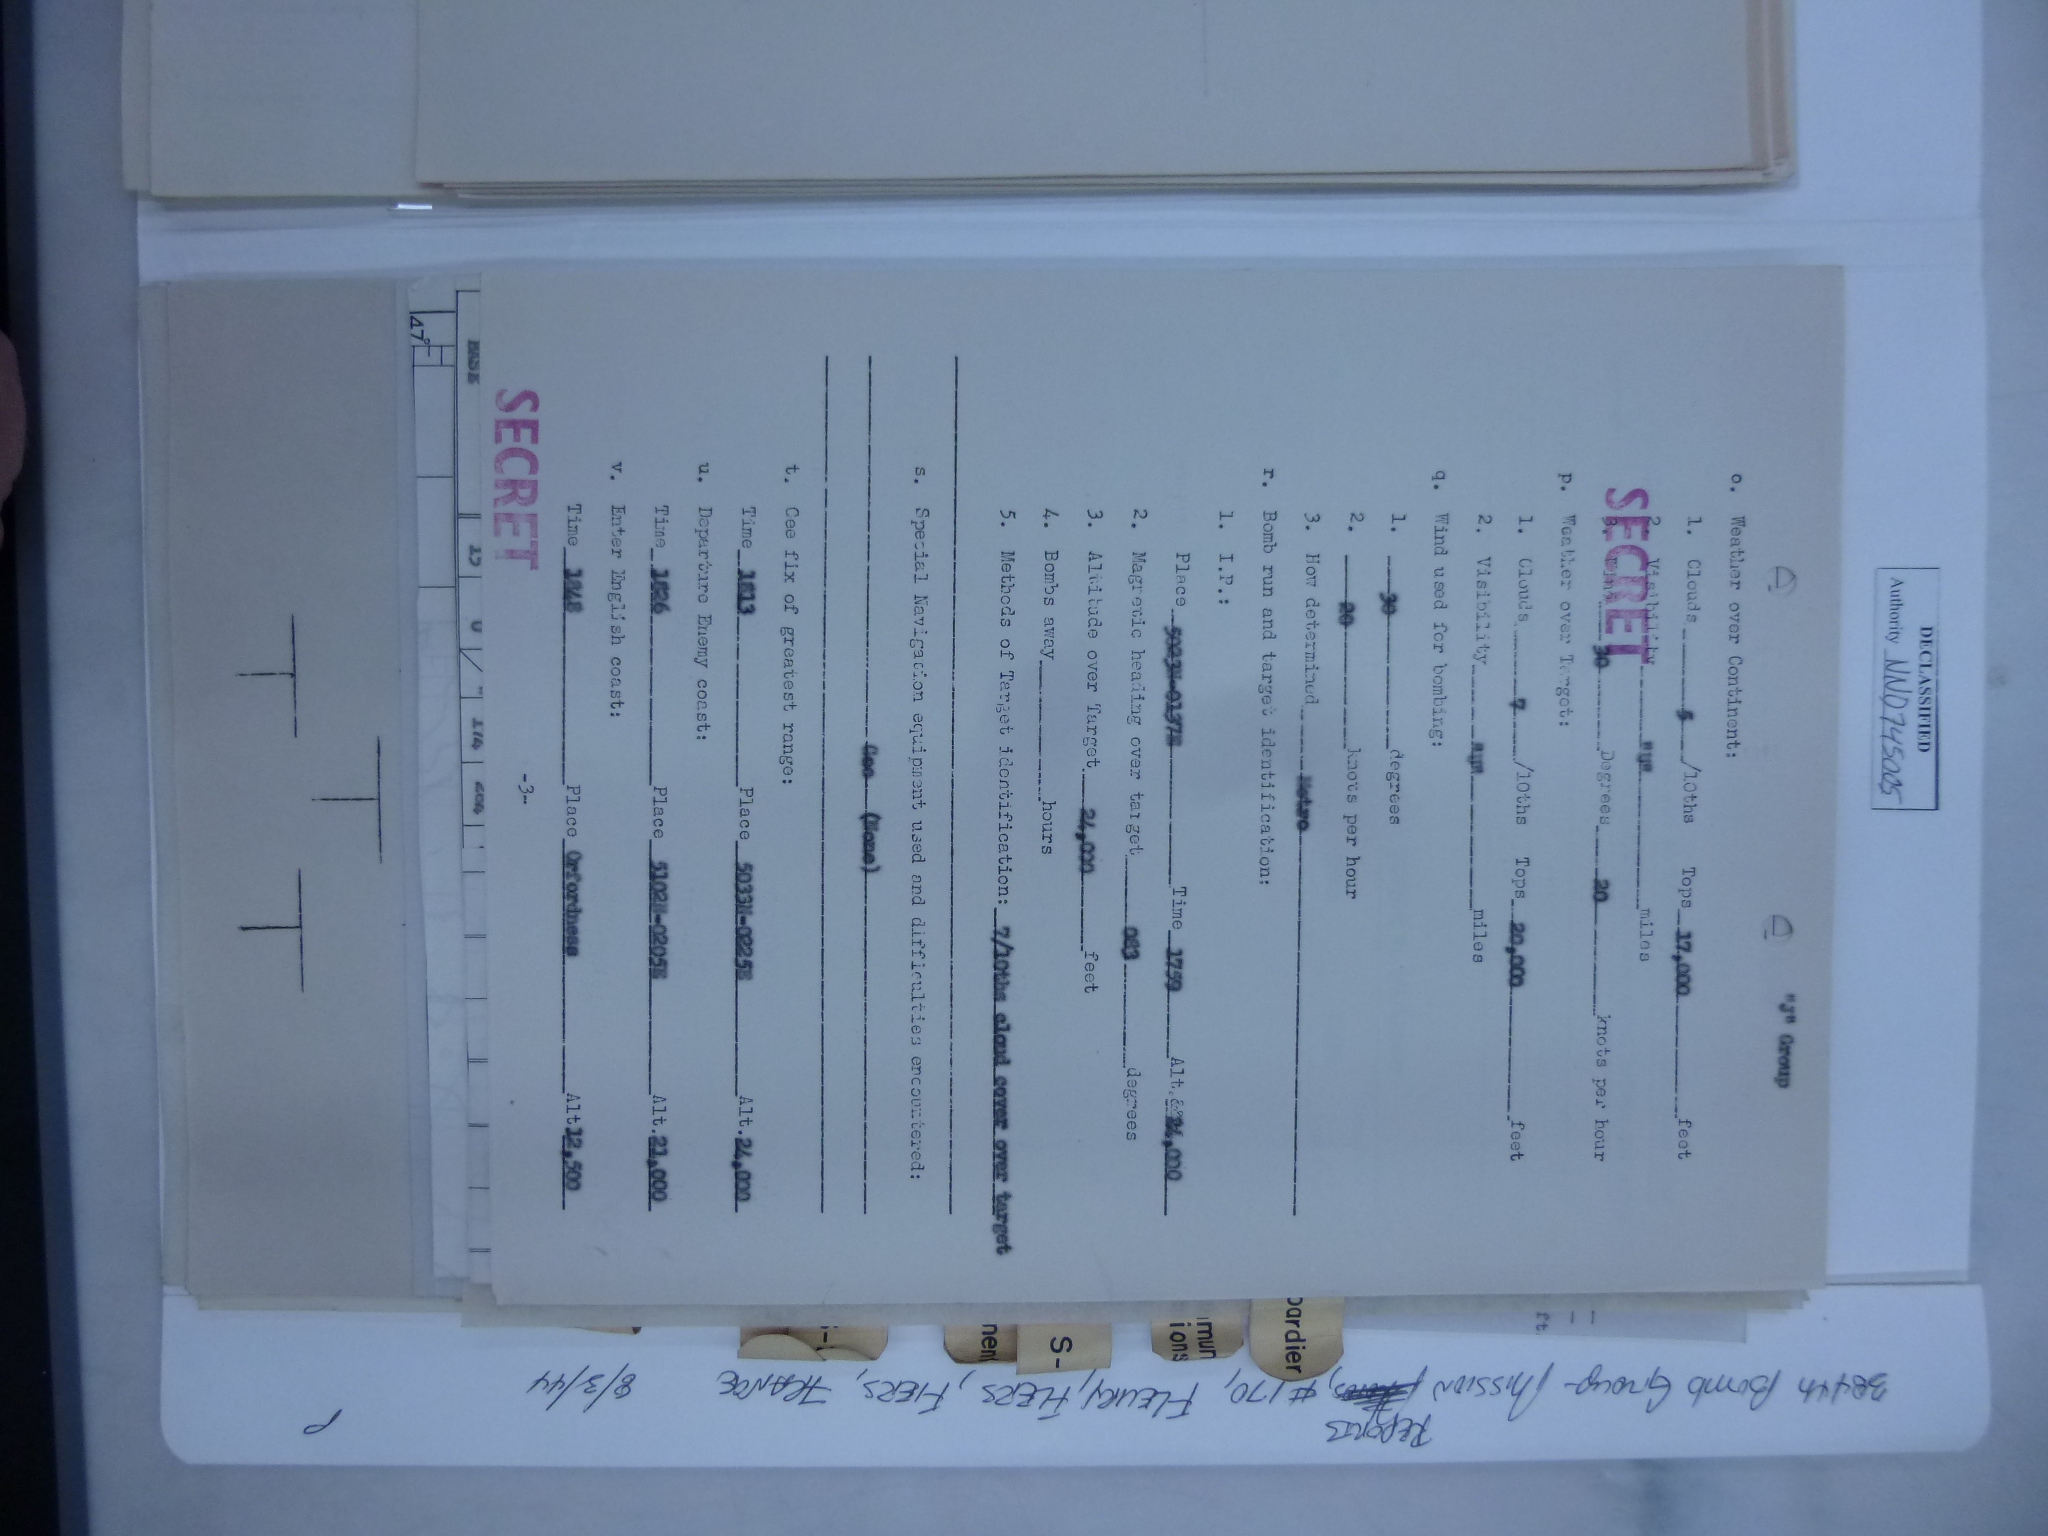 DECLASSIFIED
Authority NND 745005
"J" Group
o. Weather over Continent:
1. Clouds 5 /10ths Tops 17,000 feet
2. Visibility "U" miles
SECRET
3. 30 Degrees 20 knots per hour
p. Weather over Target:
1. Clouds 7 /10ths Tops 20,000 feet
2. Visibility "U" miles
q. Wind used for bombing:
1. 30 degrees
2. 20 knots per hour
3. How determined Metro
r. Bomb run and target identification:
1. I.P.:
Place 5003N-0137E Time 1759 Alt. 24,000
2. Magnetic heading over target 083 degrees
3. Altitude over Target 24,000 feet
4. Bombs away hours
5. Methods of Target identification: 7/10ths cloud cover over target
s. Special Navigation equipment used and difficulties encountered:
Gee (None)
t. Gee fix of greatest range:
Time 1813 Place 5033N-0225E Alt. 24,000
u. Departure Enemy coast:
Time 1826 Place 5102N-0205E Alt. 21,000
v. Enter English coast:
Time 1848 Place Orfordness Alt 12,500
-3-
SECRET
BASE
47°
bardier
mun
ions
S-
nen
ft
384th Bomb Group - Mission Reports, #170, FLEURY, FLERS, FIERS, FRANCE 8/3/44